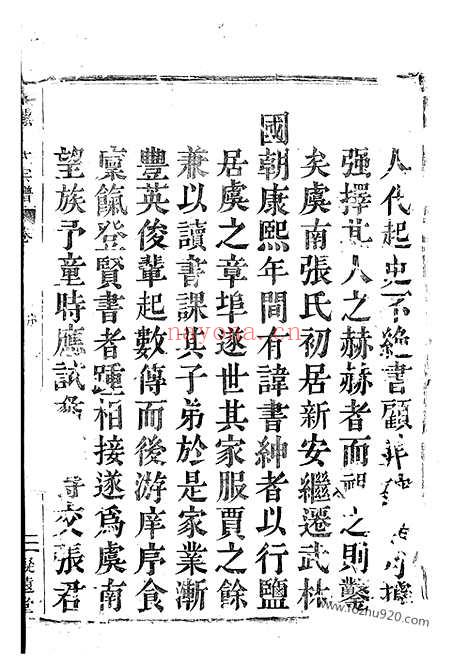 人代起史不絕書顧
强擇其人之赫赫者而祖之則鑿
矣虞南張氏初居新安繼遷武林
國朝康熙年間有諱書紳者以行鹽
居虞之章埠遂世其家服賈之餘
兼以讀書課其子弟於是家業漸
豐英俊輩起數傳而後游庠序食
廩餼登賢書者踵相接遂爲虞南
望族予童時應試 交張君
宗譜 卷
序
二
nayona.cn
rozhu920.com